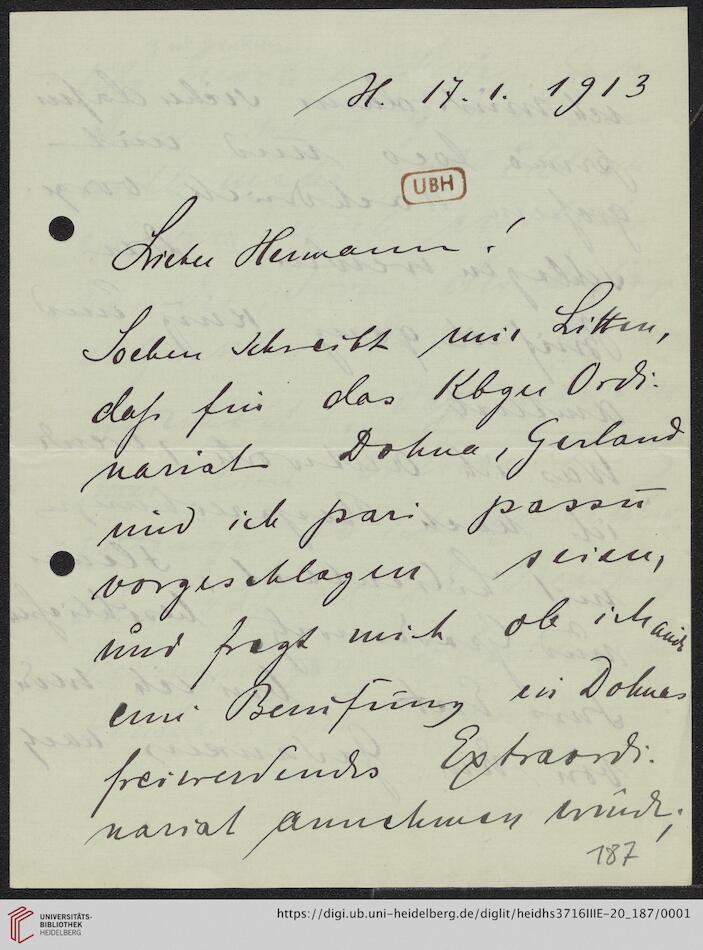 H. 17. 1. 1913
UBH
Lieber Hermann!
Soeben schreibt mir Litten,
daß für das Kbger Ordi-
nariat Dohna, Gerland
und ich pari passu
vorgeschlagen seien,
und fragt mich ob ich auch
eine Berufung in Dohnas
freiwerdendes Extraordi-
nariat annehmen würde;
187
UNIVERSITÄTS-
BIBLIOTHEK
HEIDELBERG
https://digi.ub.uni-heidelberg.de/diglit/heidhs3716IIIE-20_187/0001